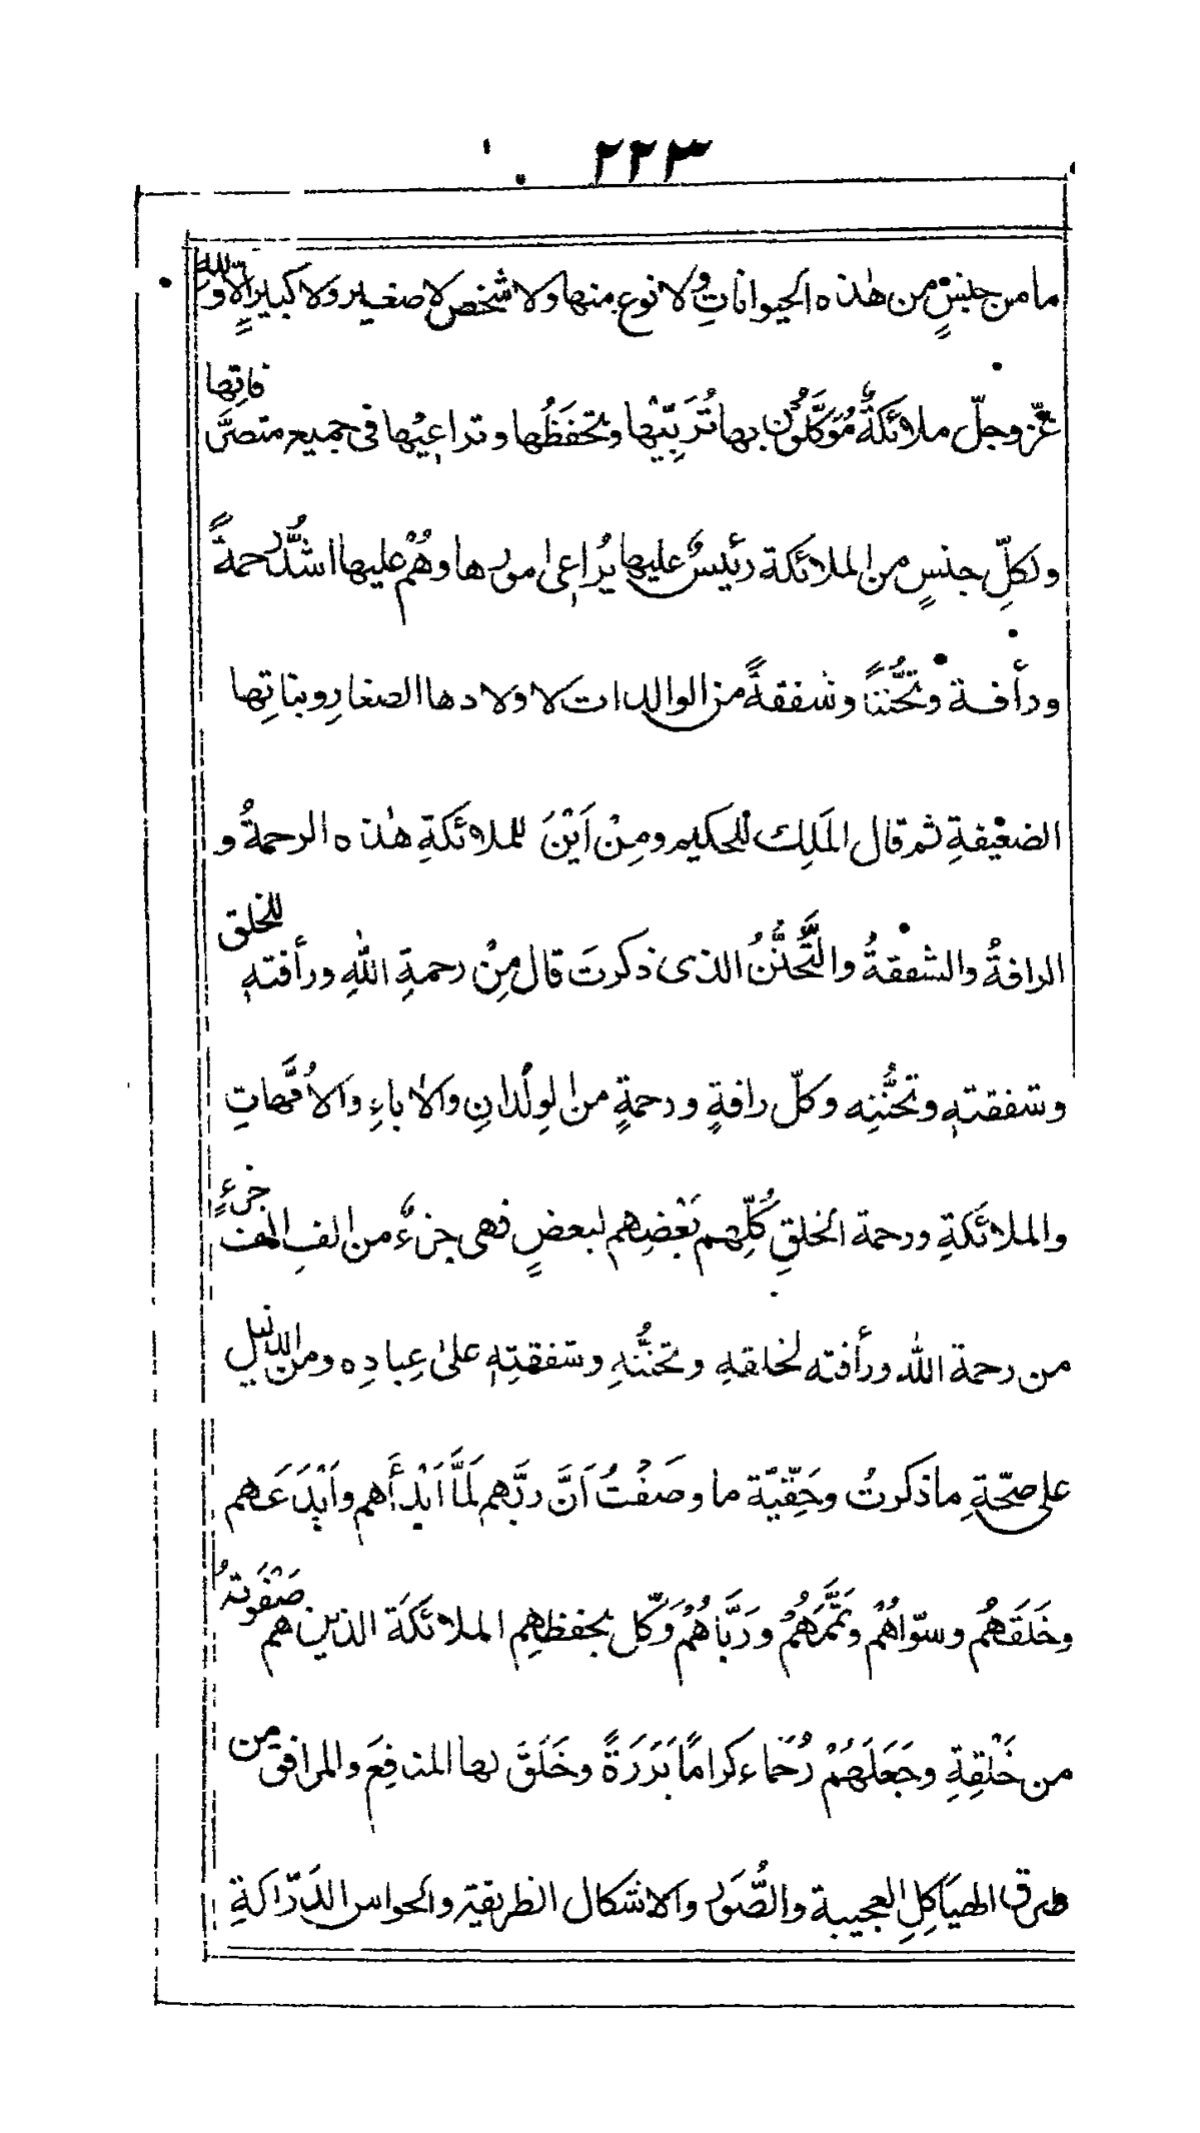 ٢٢٣
ما من جنسٍ من هٰذه الحيواناتِ ولا نوعٍ منها ولا شخصٍ لا صغيرٍ ولا كبيرٍ اِلّا وللّٰه
عزّ وجلّ ملائكةٌ مُوَكَّلُون بها تُرَبِّيْها وتحفَظُها وتراعِيْها فى جميع متصرَّفاتِها
ولكلِّ جنسٍ من الملائكة رئيسٌ عليها يُراعى امورها وهُمْ عليها اشدُّ رحمةً
ورأفة وتحُّنناً وشفقةً من الوالدات لاولادها الصغارِ وبناتِها
الضعيْفةِ ثم قال المَلِك للحكيم ومِنْ اَيْنَ للملائكةِ هٰذه الرحمةُ و
الرافةُ والشفقةُ والتَّحنُّنُ الذى ذكرتَ قال مِنْ رحمةِ اللهِ ورأفتهٖ للخلق
وشفقتهٖ وتحنُّنِه وكلّ رافةٍ ورحمةٍ من الوِلْدانِ والاٰباءِ والاُمَّهاتِ
والملائكةِ ورحمة الخلقِ كُلِّهم بَعْضِهم لبعضٍ فهى جزءٌ من الفِ الف جزءٍ
من رحمة الله ورأفته لخلقهِ وتحنُّنهِ وشفقتِهٖ علىٰ عِبادِه ومن الدليل
على صحّةِ ما ذكرتُ وحَقِّيّة ما وصَفْتُ اَنَّ ربَّهم لَمَّا اَبْدأَهم واَبْدَعَهم
وخَلَقَهُم وسوّاهُمْ وتَمَّمَهُمْ ورَبَّاهُمْ وَكّل بحفظِهِم الملائكَة الذين هم صَفْوَتهُ
من خَلْقِةِ وجَعَلَهَمْ رُحَماء كرامًا بَرَرَةً وخَلَقَ لها المنافِعَ والمرافق من
طرق الهيَاكِلِ العجيبة والصُّوَر والاشكال الظريفة والحواس الدَرّاكةِ